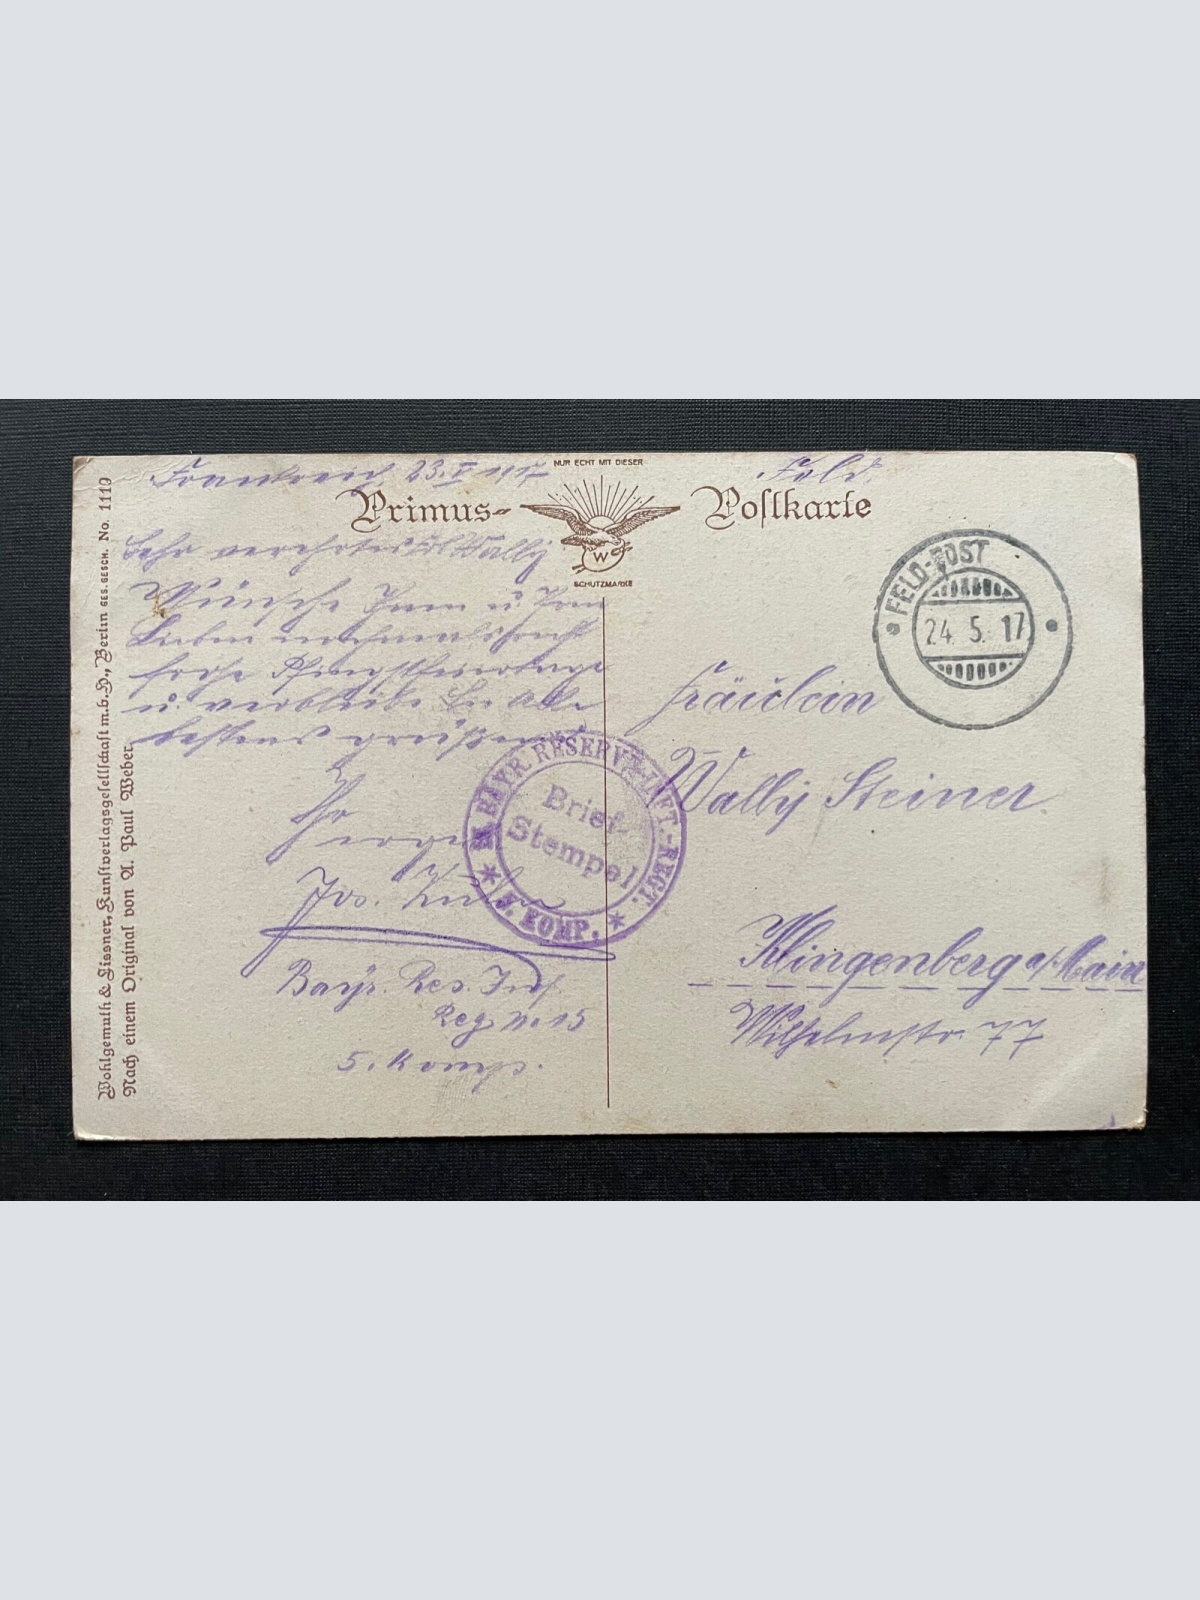 Frankreich, 23.V 1917
Feld.
NUR ECHT MIT DIESER
Primus-
Postkarte
W
SCHUTZMARKE
Sehr verehrtes Frl Wally
Wünsche Ihnen u. Ihren
Lieben nochmals recht
frohe Pfingstfeiertage
u. verbleibe Sie Alle
bestens grüßend
Ihr
Jos.
Bayr. Res. Inf
Reg. No 15
5. Komp.
FELD-POST
24. 5. 17
Fräulein
Wally Steiner
Klingenberg a/Main
Wilhelmstr. 77
BAYR. RESERVE-INFT.-REGT.
Brief-
Stempel
5. KOMP.
Wohlgemuth & Lissner, Kunstverlagsgesellschaft m.b.H., Berlin GES. GESCH. No. 1119
Nach einem Original von A. Paul Weber